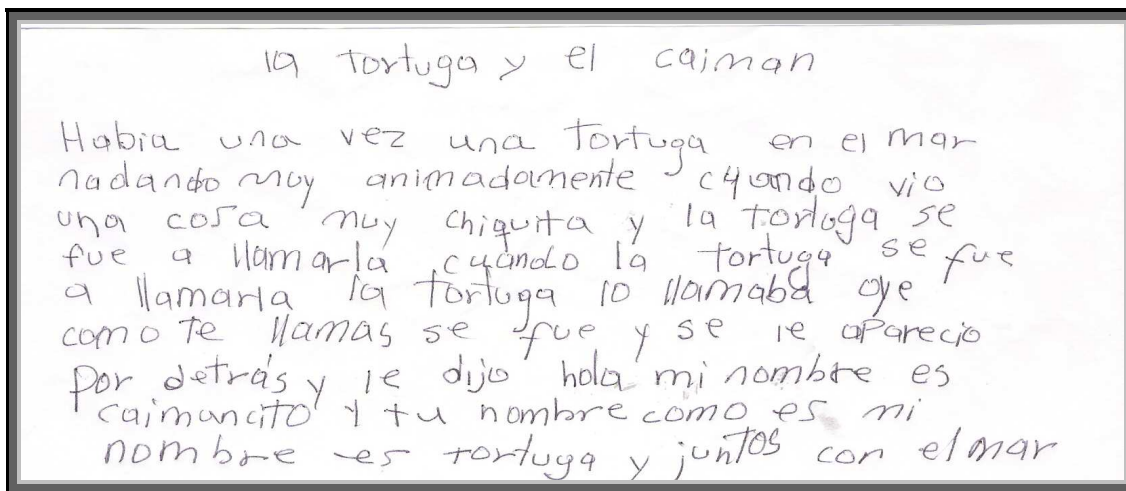 la tortuga y el caiman
Habia una vez una tortuga en el mar
nadando muy animadamente cuando vio
una cosa muy chiquita y la tortuga se
fue a llamarla cuando la tortuga se fue
a llamarla la tortuga lo llamaba oye
como te llamas se fue y se le aparecio
por detrás y le dijo hola mi nombre es
caimancito y tu nombre como es mi
nombre es tortuga y juntos con el mar